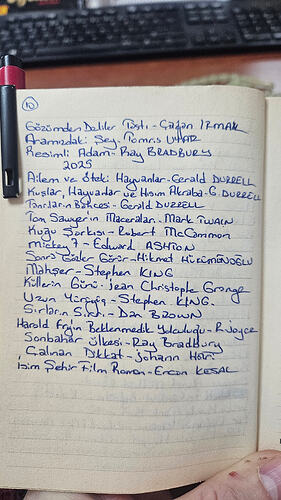 10
Gözümden Deliler Taştı - Çağan IRMAK
Aramızdaki Şey. Tomris UYAR
Resimli Adam - Ray BRADBURY
2025
Ailem ve Öteki Hayvanlar - Gerald DURRELL
Kuşlar, Hayvanlar ve Hısım Akraba - G. DURRELL
Tanrıların Bahçesi - Gerald DURRELL
Tom Sawyer'in Maceraları. Mark TWAIN
Kuğu Şarkısı - Robert McCammon
Mickey 7 - Edward ASHTON
Sonra Gözler Görür - Hikmet HÜKÜMENOĞLU
Mahşer - Stephen KING
Küllerin Günü - Jean Christophe Grange
Uzun Yürüyüş - Stephen KING.
Sırların Sırrı - Dan BROWN
Harold Fry'ın Beklenmedik Yolculuğu - R. Joyce
Sonbahar Ülkesi - Ray Bradbury
Çalınan Dikkat - Johann Hari
İsim Şehir Film Roman - Ercan KESAL